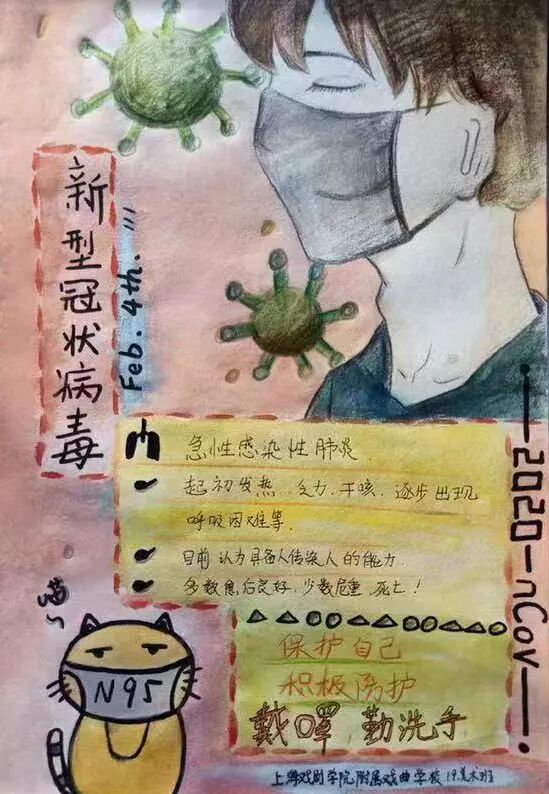 新型冠状病毒
Feb. 4th.
急性感染性肺炎
起初发热.乏力.干咳.逐步出现
呼吸困难等.
目前认为具备人传染人的能力.
多数愈后良好.少数危重 死亡!
2020-nCoV
保护自己
积极防护
戴口罩 勤洗手
喵~
N95
上海戏剧学院附属戏曲学校 19.美术班